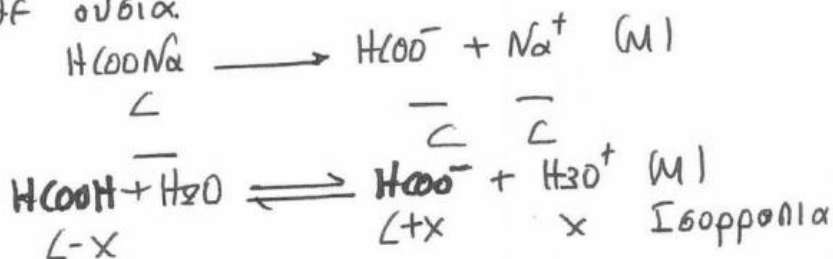 ουσια.
HCOONa ⟶ HCOO⁻ + Na⁺ (M)
C
— —
C C
—
HCOOH + H2O ⇌ HCOO⁻ + H3O⁺ (M)
C-x C+x x Ισορροπια